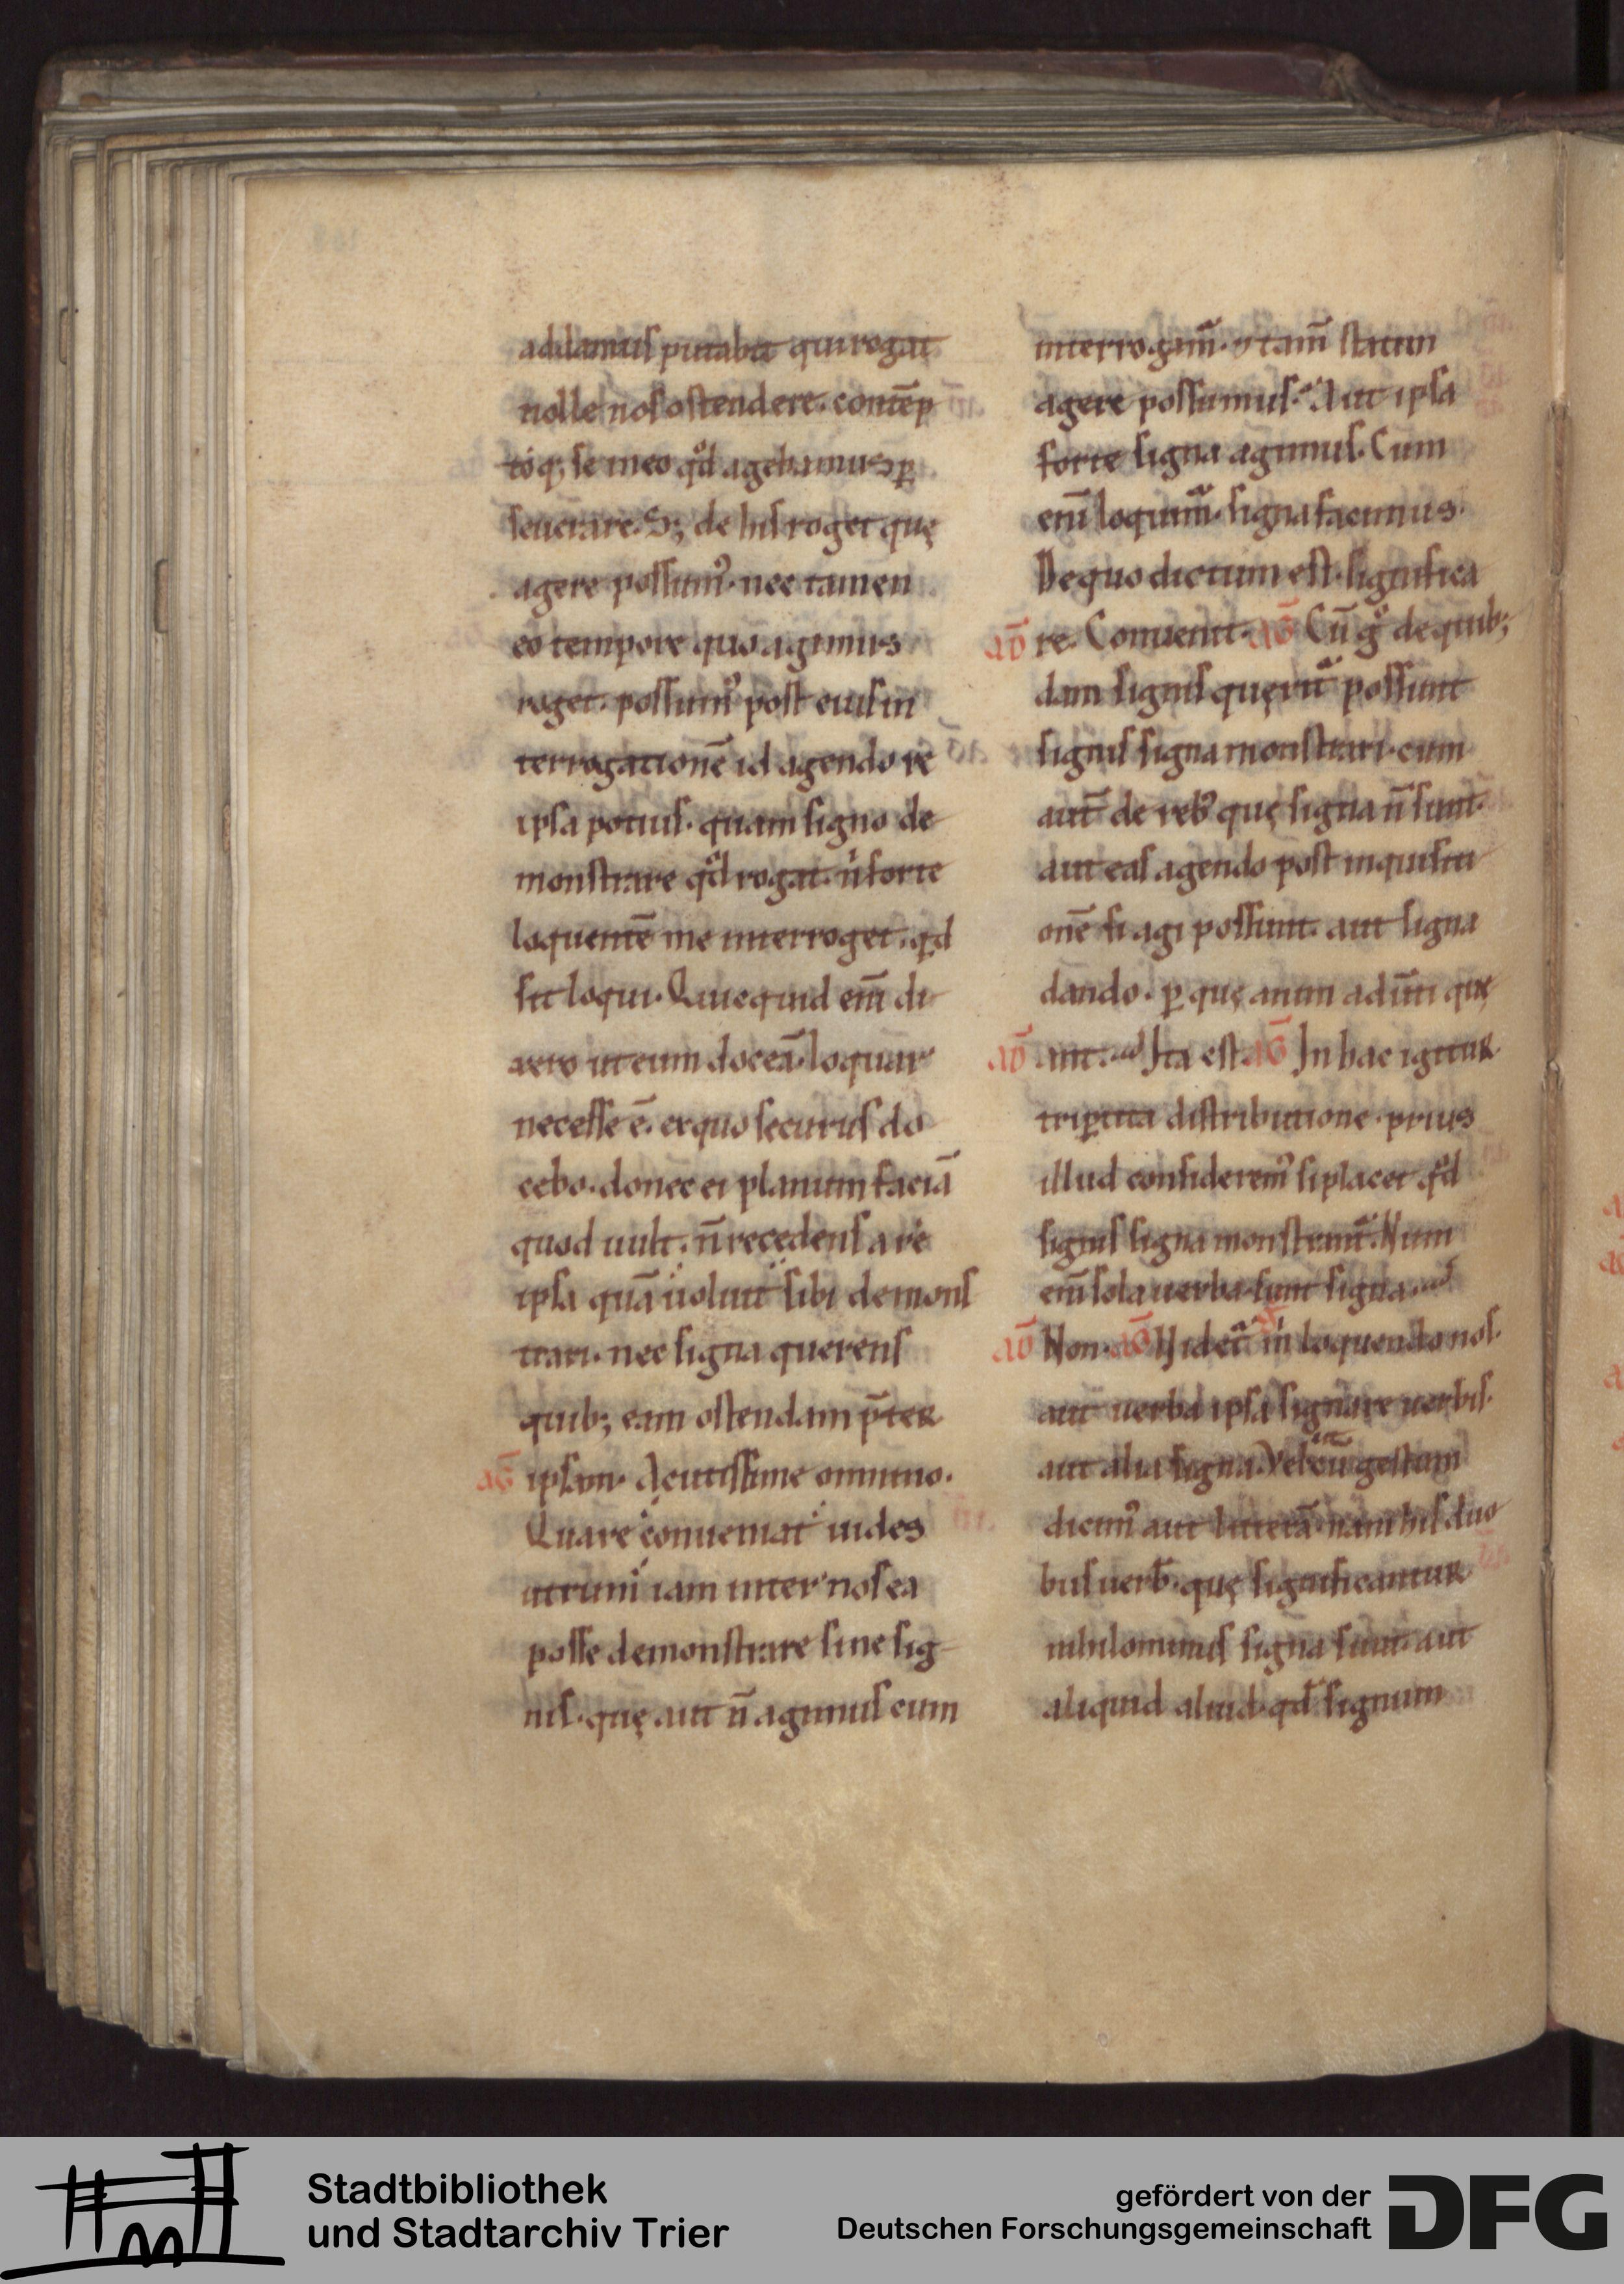 addamus putabit qui rogat
nolle nos ostendere. contēp
toq; se meo qd̊ agebamus ꝑ
seuerare. S; de his roget quę
agere possum᾽. nec tamen
eo tempore quo agimus
roget. possum᾽ post eius in
terrogationē id agendo re
ipsa potius. quam signo de
monstrare qd̊ rogat. n̍ forte
loquentē me interroget. qd
sit loqui. Quicquid enī di
xero ut eum doceā. loquar
necesse ē. ex quo securus do
cebo. donec ei planum faciā
quod uult. n̄ recedens a re
ipsa quā uoluit sibi demons
trari. nec signa querens
quib; eam ostendam p̄ter
aḡ ipsam. Acutissime omnino.
Quare conueniat uides
utrum iam inter nos ea
posse demonstrare sine sig
nis. quę aut n̄ agimus cum
interrogam̄. ⁊ tam̄ statim
agere possumus. Aut ipsa
forte signa agimus. Cum
enī loquim̄. signa facimus.
De quo dictum est. significa
ad̄ re. Conuenit. aḡ Cū gͦ de quib;
dam signis querit̄ possunt
signis signa monstrari. cum
aut̄ de reb᾽ quę signa n̄ sunt.
aut eas agendo post inquisiti
onē si agi possunt. aut signa
dando. ꝑ quę anim aduti que
ad̄ ant. Ita est. aḡ In hac igitur
triꝑtita distributione. prius
illud considerem᾽ si placet. qd̊
signis signa monstrant̄. Num
enī sola uerba sunt signa.
ad̄ Non. aḡ Videt̄ m̍ loquendo nos.
aut uerba ipsa signare uerbis.
aut alia signa. Vel cū gestum
dicim᾽ aut litterā. nam his duo
bus uerb̄. quę significantur
nihilominus signa sunt. aut
aliquid aliud. qd̄ signum
Stadtbibliothek
und Stadtarchiv Trier
gefördert von der
Deutschen Forschungsgemeinschaft
DFG